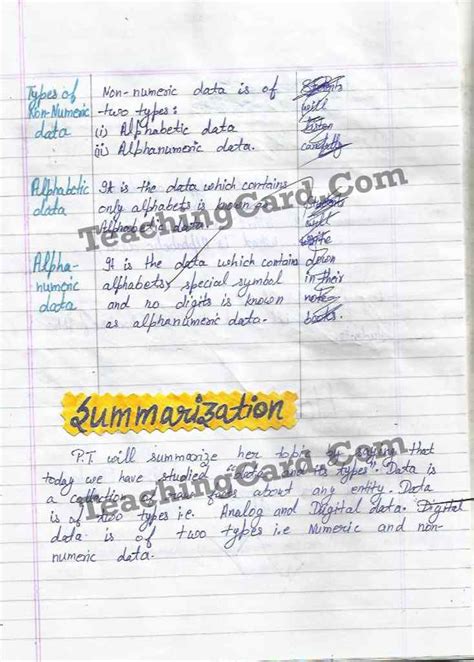 Types of Non-Numeric data
Non-numeric data is of
two types:
(i) Alphabetic data
ii) Alphanumeric data.
will
listen
carefully
Alphabetic data
It is the data which contains
only alphabets is known as
Alphabetic data.
will
write
Alpha-numeric data
It is the data which contains
alphabets, special symbol
and no digits is known
as alphanumeric data.
down
in their
note
books.
TeachingCard.Com
Summarization
P.T. will summarize her topic by saying that
today we have studied "data and its types". Data is
a collection of raw facts about any entity. Data
is of two types i.e. Analog and Digital data. Digital
data is of two types i.e Numeric and non-
numeric data.
TeachingCard.Com